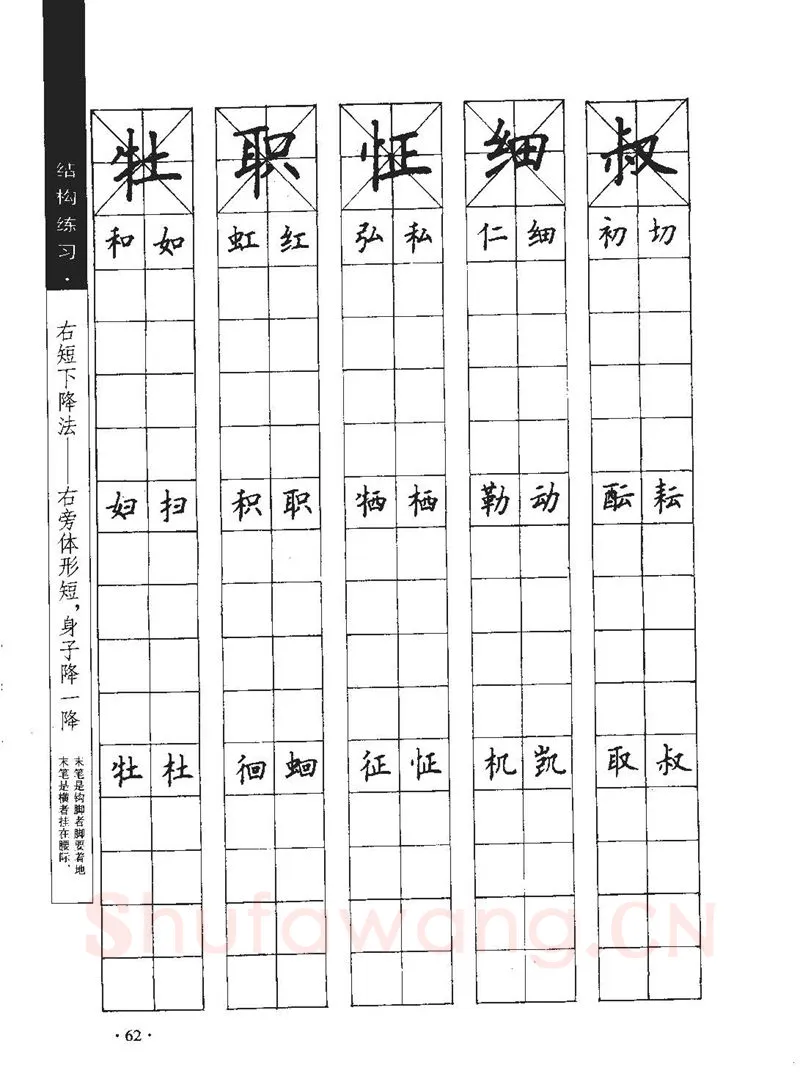 结构练习·
右短下降法——右旁体形短，身子降一降
末笔是钩脚者脚要着地
末笔是横者挂在腰际．
牡 职 怔 细 叔
和 如 虹 红 弘 私 仁 细 初 切
妇 扫 积 职 牺 栖 勒 动 酝 耘
牡 杜 徊 蛔 征 怔 机 凯 取 叔
Shufawang.CN
·62·